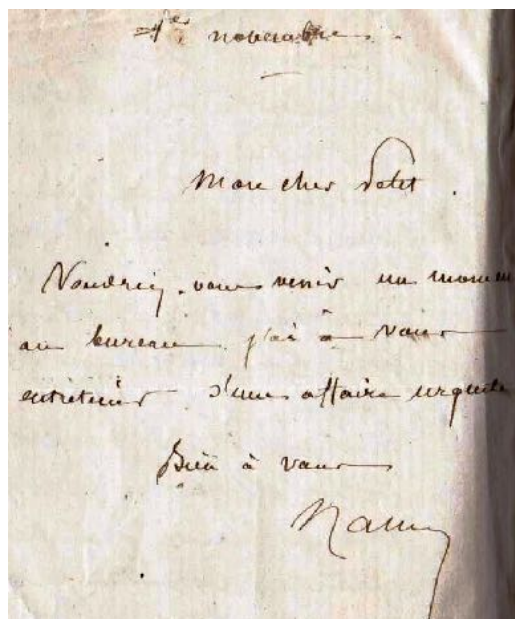 1er novembre
Mon cher Petit
Voudriez-vous venir un momen
au bureau j'ai à vous
entretenir d'une affaire urgente
Bien à vous